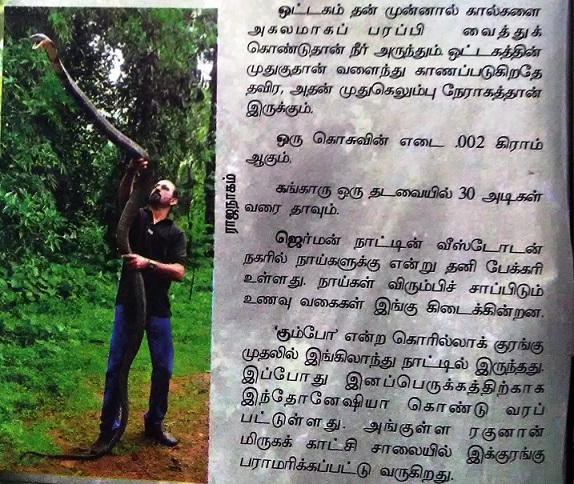 ராஜநாகம்
ஒட்டகம் தன் முன்னால் கால்களை
அகலமாகப் பரப்பி வைத்துக்
கொண்டுதான் நீர் அருந்தும். ஒட்டகத்தின்
முதுகுதான் வளைந்து காணப்படுகிறதே
தவிர, அதன் முதுகெலும்பு நேராகத்தான்
இருக்கும்.
ஒரு கொசுவின் எடை .002 கிராம்
ஆகும்.
கங்காரு ஒரு தடவையில் 30 அடிகள்
வரை தாவும்.
ஜெர்மன் நாட்டின் வீஸ்டோடன்
நகரில் நாய்களுக்கு என்று தனி பேக்கரி
உள்ளது. நாய்கள் விரும்பிச் சாப்பிடும்
உணவு வகைகள் இங்கு கிடைக்கின்றன.
'கும்போ' என்ற கொரில்லாக் குரங்கு
முதலில் இங்கிலாந்து நாட்டில் இருந்தது.
இப்போது இனப்பெருக்கத்திற்காக
இந்தோனேஷியா கொண்டு வரப்
பட்டுள்ளது. அங்குள்ள ரகுனான்
மிருகக் காட்சி சாலையில் இக்குரங்கு
பராமரிக்கப்பட்டு வருகிறது.